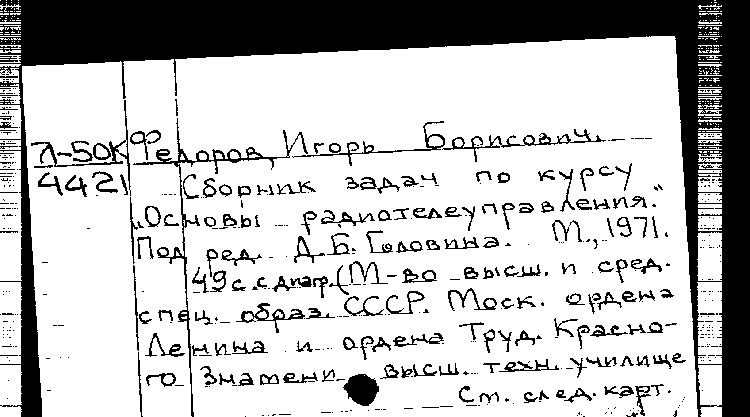 Л-50К Федоров, Игорь Борисович.
4421 Сборник задач по курсу
„Основы радиотелеуправления.“
Под ред. Д.Б. Головина. М., 1971.
49 с. с диагр. (М-во высш. и сред.
спец. образ. СССР. Моск. ордена
Ленина и ордена Труд. Красно-
го Знамени высш. техн. училище
См. след. карт.